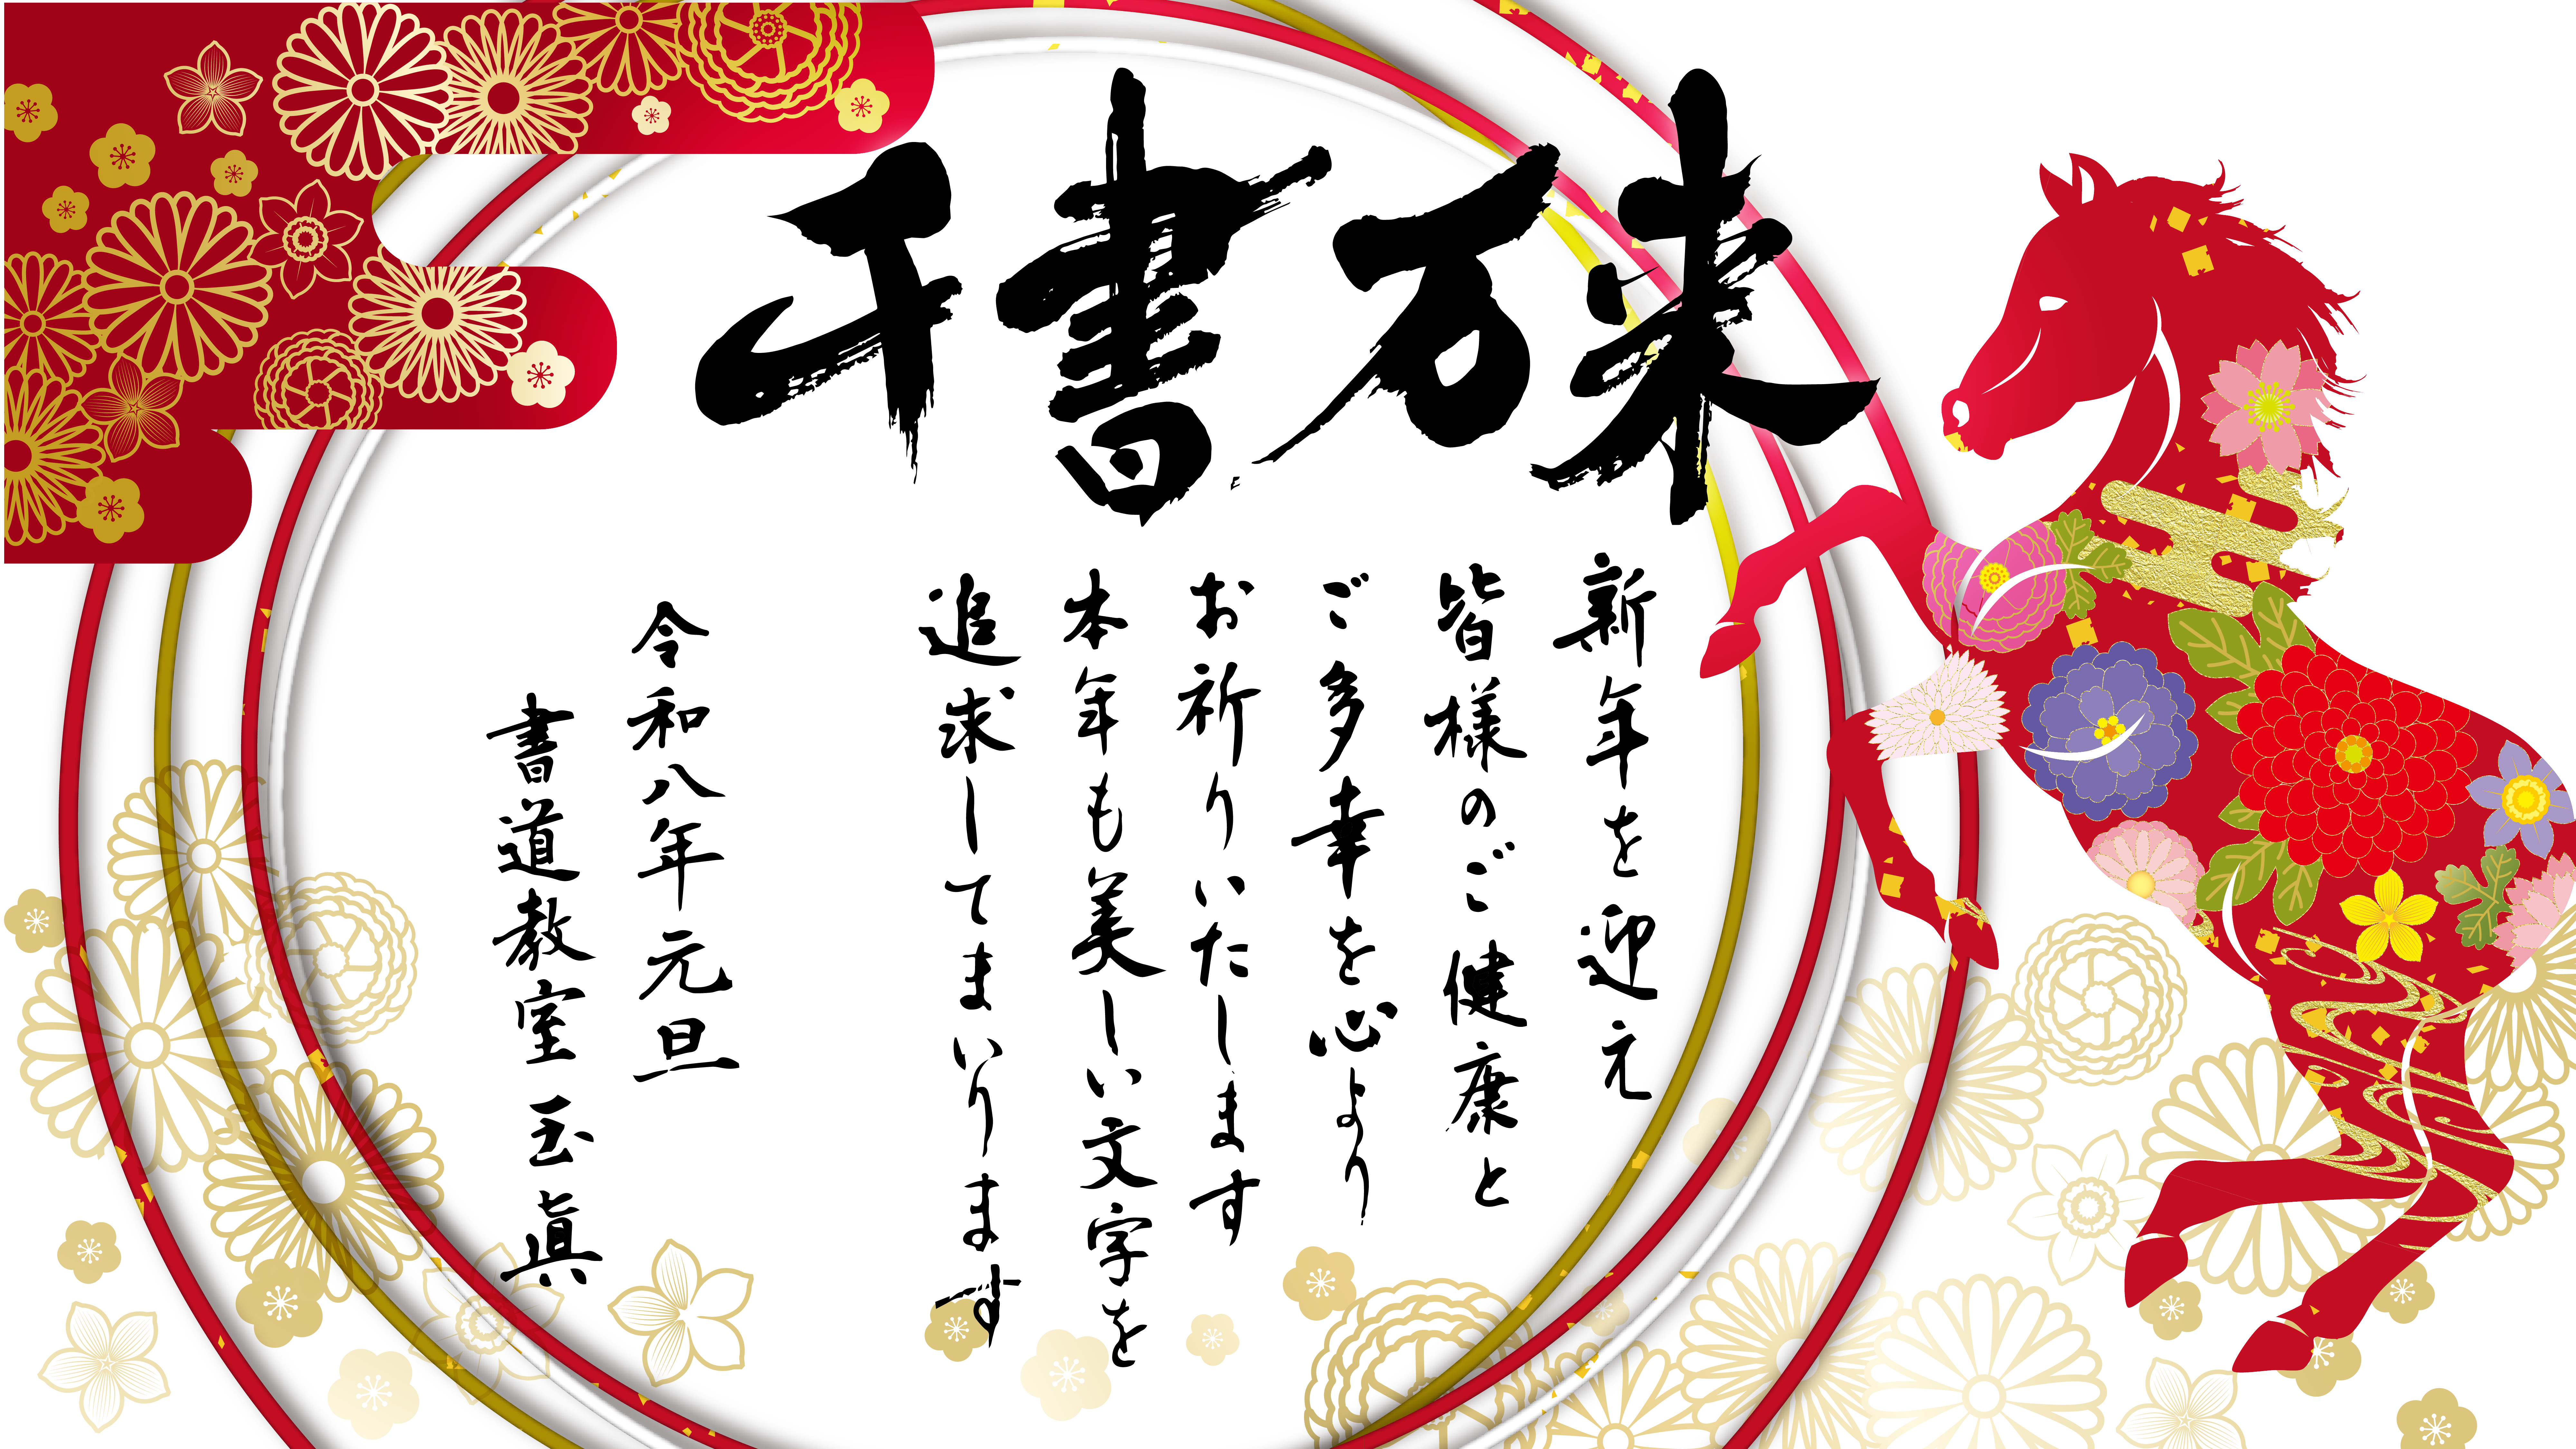 千書万来
新年を迎え
皆様のご健康と
ご多幸を心より
お祈りいたします
本年も美しい文字を
追求してまいります
令和八年元旦
書道教室 玉眞